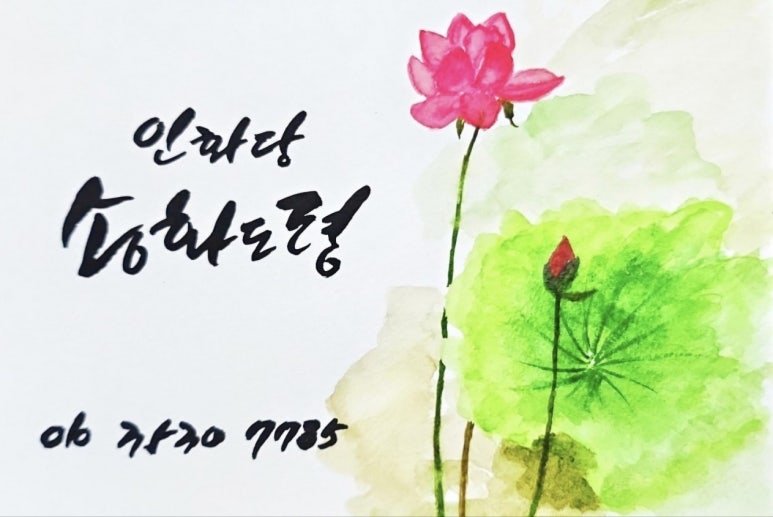 인화당
송화도령
010 3830 7785